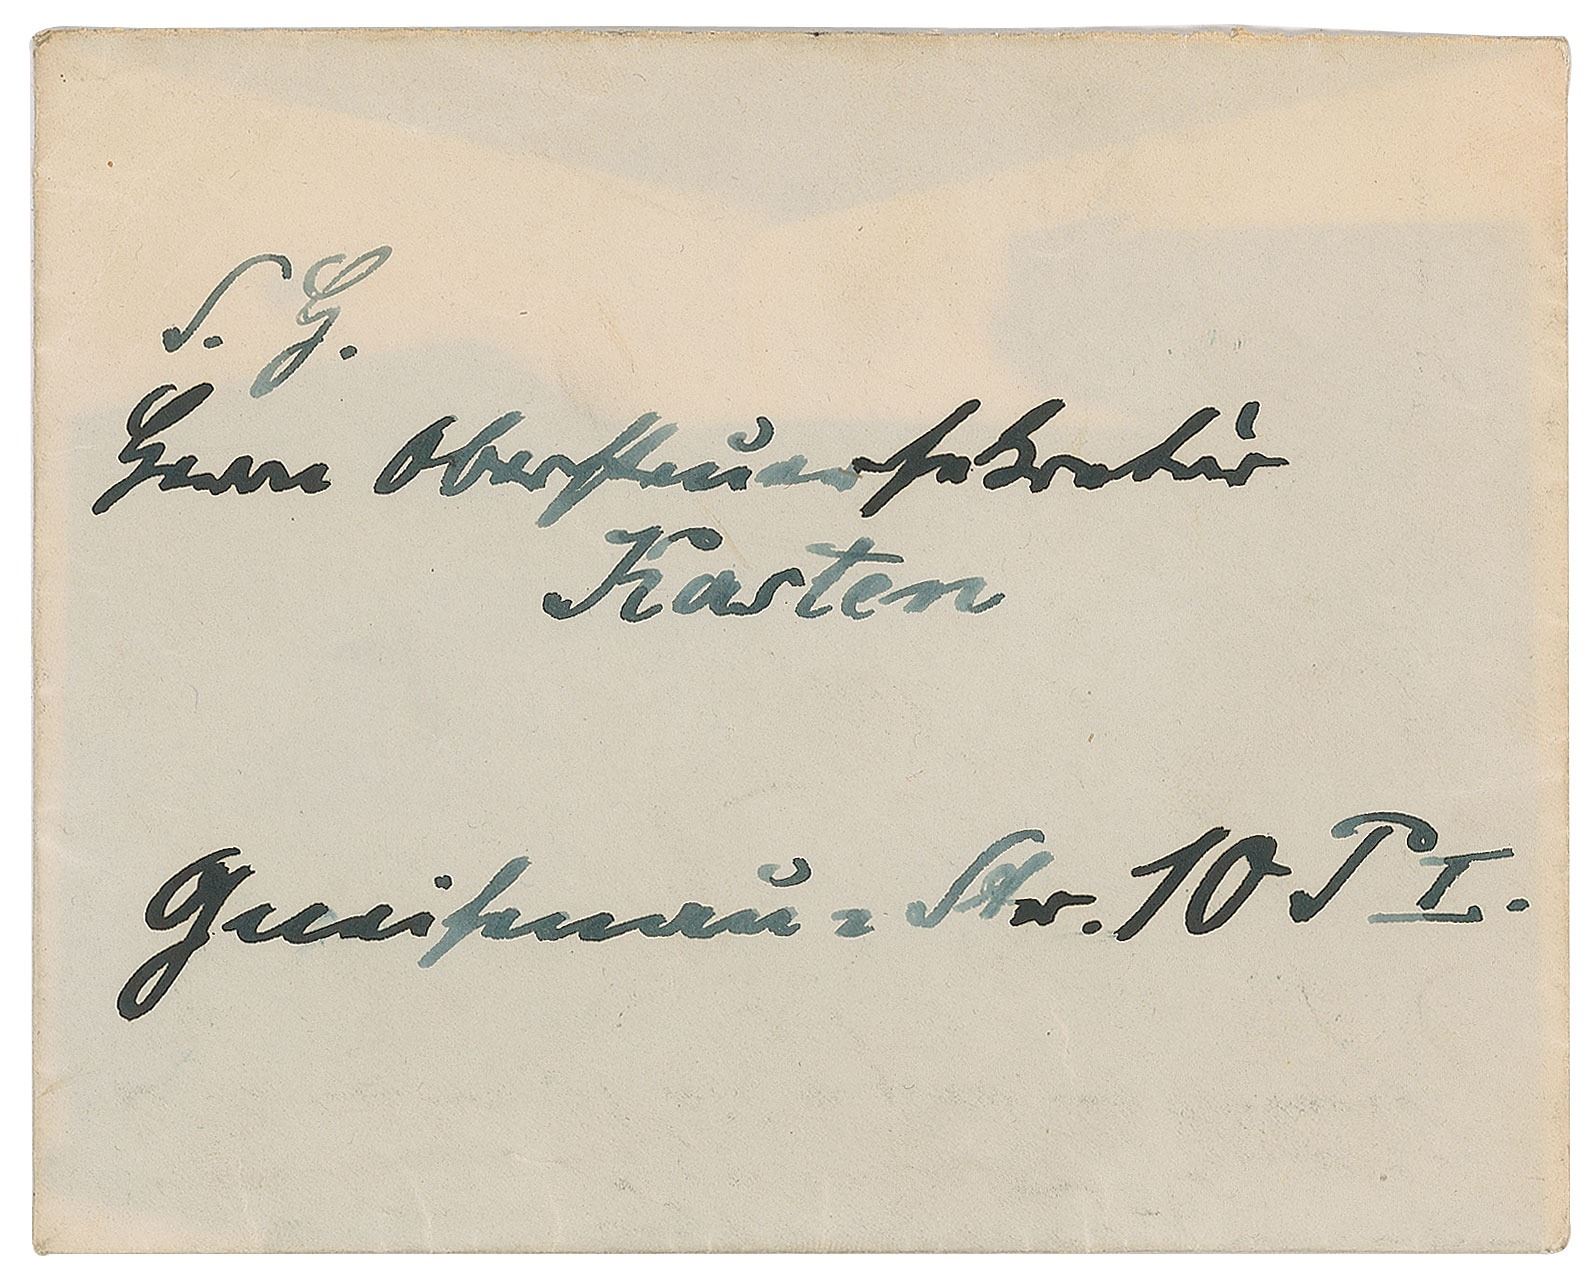 S. H.
Herrn Obersteuersekretär
Kasten
Gneisenau=Str. 10 P I.